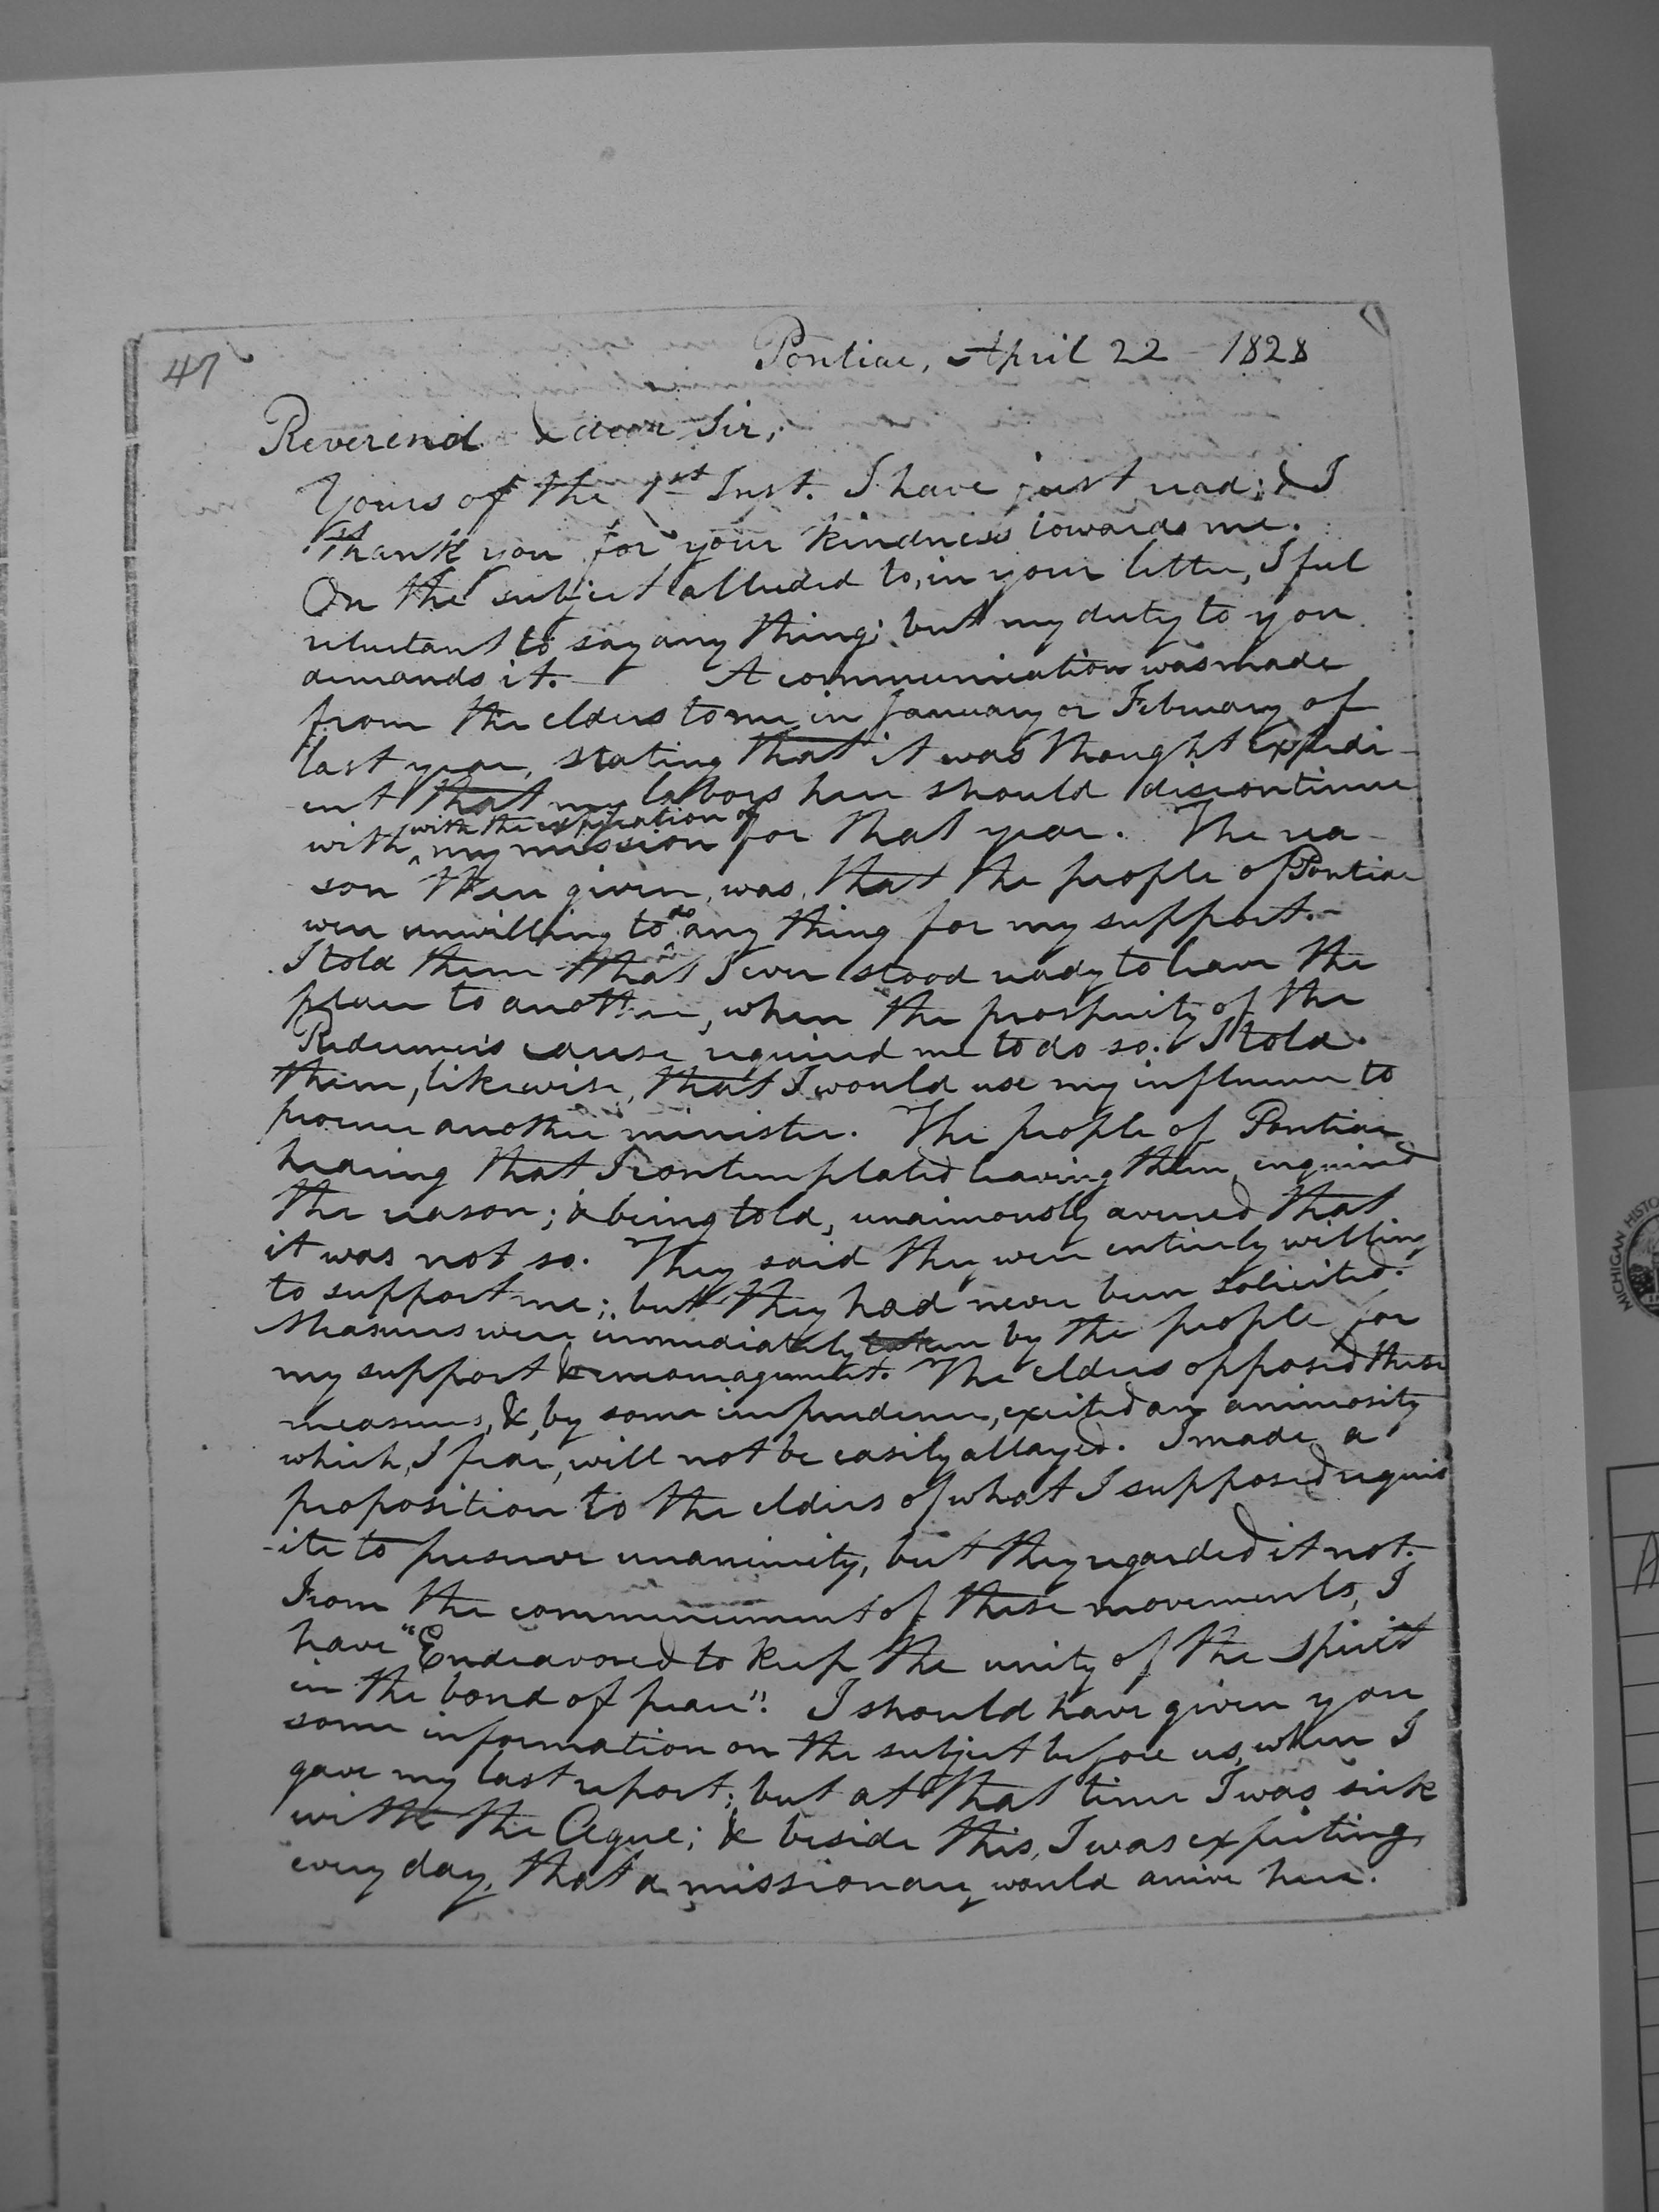 47
Pontiac, April 22 - 1828
Reverend & dear Sir,
Yours of the 1st Inst. I have just read; & I
thank you for your kindness towards me.
On the subject alluded to, in your letter, I feel
reluctant to say any thing; but my duty to you
demands it. A communication was made
from the elders to me in January or February of
last year, stating that it was thought expedi-
ent that my labors here should discontinue
with the expiration of
with my mission for that year. The rea-
son then given, was, that the people of Pontiac
do
were unwilling to any thing for my support.-
I told them that I ever stood ready to leave the
place to another, when the prosperity of the
Redeemer's cause required me to do so. I told
them, likewise, that I would use my influence to
procure another minister. The people of Pontiac
hearing that I contemplated leaving them, enquired
the reason; & being told, unaimously averred that
it was not so. They said they were entirely willing
to support me; but they had never been solicited.
Measures were immediately taken by the people for
my support & management. The elders opposed these
measures, & by some imprudence, excited an animosity
which, I fear, will not be easily allayed. I made a
proposition to the elders of what I supposed requis
-ite to preserve unanimity, but they regarded it not.
From the commencement of these movements, I
have "Endeavored to keep the unity of the spirit
in the bond of peace". I should have given you
some information on the subject before us, when I
gave my last report; but at that time I was sick
with the Ague; & beside this, I was expecting,
every day, that a missionary would arrive here.
MICHIGAN HISTO